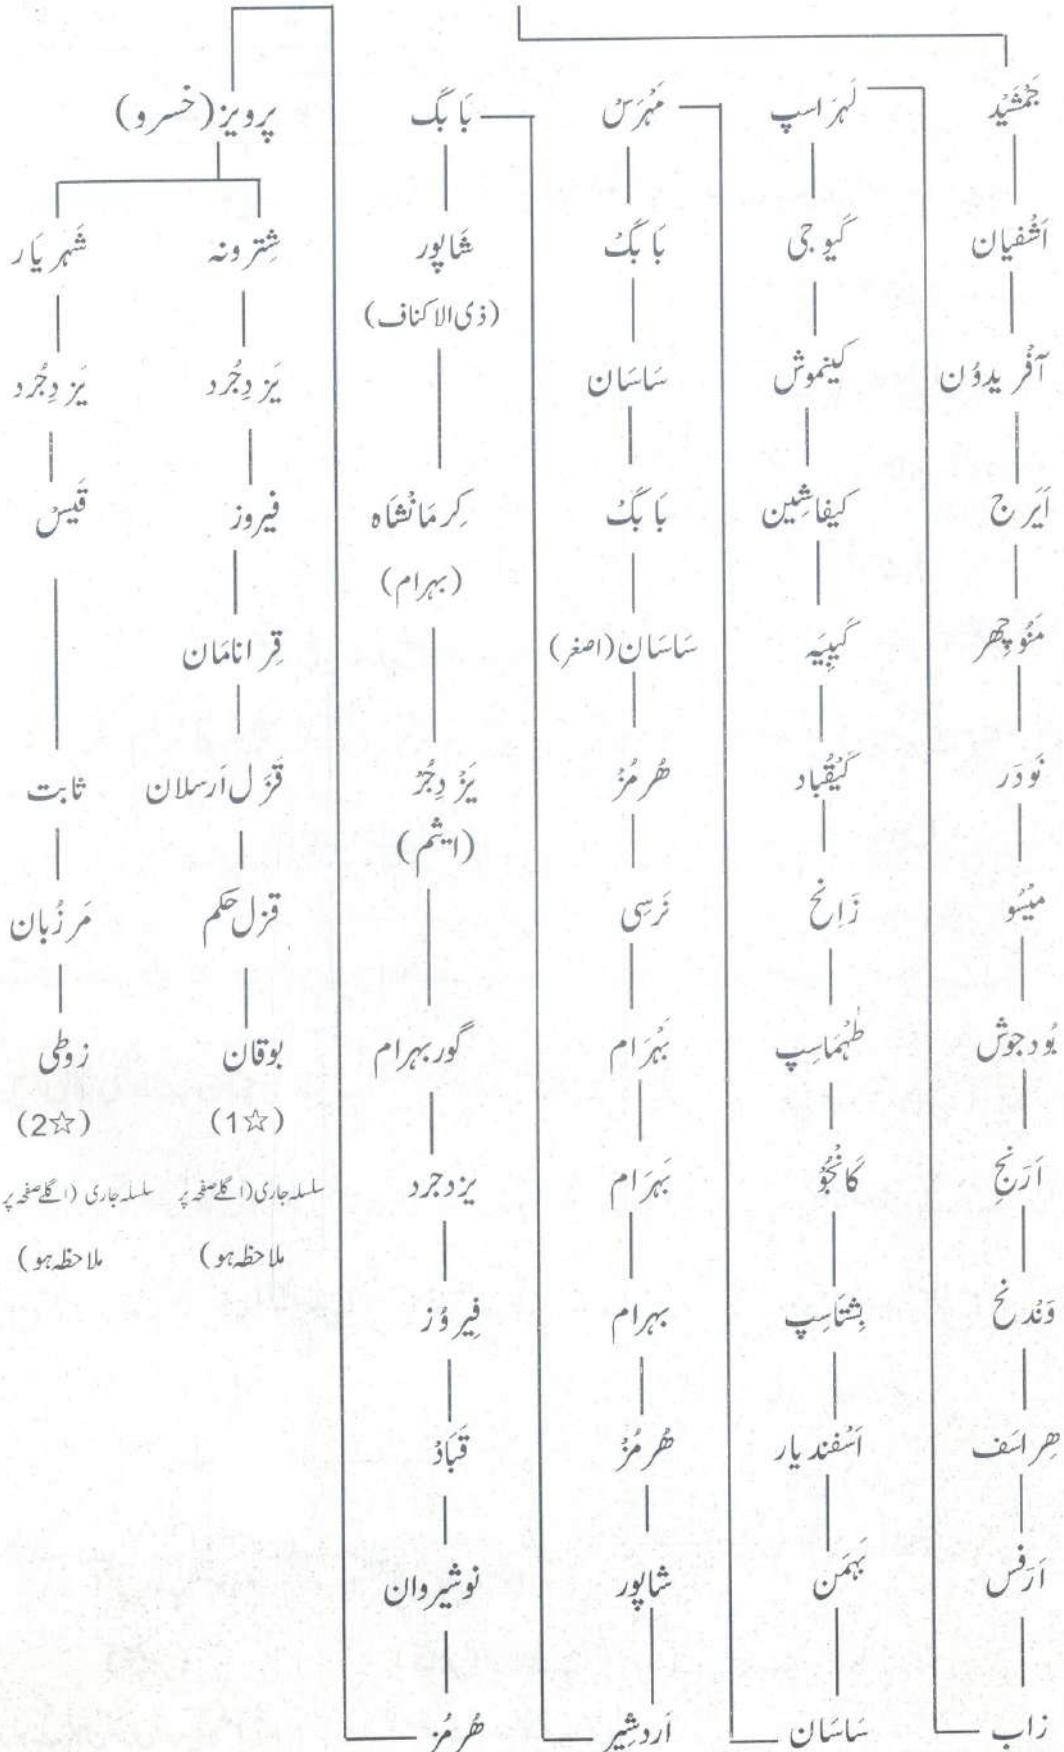 جَمْشَیْد
اَشْفیان
آفْرِیدوُن
اَیَرج
مَنُوچِھر
نَودَر
مَیْسُو
بُودجوش
اَرَنجِ
وَنْدنح
ھِراسَف
اَرَفس
زاب
لَہَراسپ
کَیوجی
کینموش
کیفاشِین
کَیِبِیَہ
کَیْقُباد
زَانح
طَہْمَاسِپ
کَانْجُوْ
بِشْتَاسِپ
اَسْفندیار
بَہَمَن
سَاسَان
مَہْرَسْ
بَابَکْ
سَاسَان
بَابَکْ
سَاسَان (اصغر)
ھُرمُزْ
نَرسِی
بَہْرَام
بَہَرَام
بہرام
ھُرمُزْ
شاپور
اَردشِیر
بَابَکْ
شَاپور
(ذی الاکناف)
کِرمَانْشَاہ
(بہرام)
یَزْدِجُرْ
(ایثم)
گور بہرام
یزدجرد
فِیروُز
قَبَادْ
نوشیروان
ھُرمُز
پرویز (خسرو)
شِترونہ
یَزدِجُرد
فیروز
قِرانامَان
قَزَل اَرسلان
قزل حکم
بوقان
(1☆)
سلسلہ جاری (اگلے صفحہ پر
ملاحظہ ہو)
شَہریَار
یَزدِجُرد
قَیسْ
ثابت
مَرزُبان
زوطی
(2☆)
سلسلہ جاری (اگلے صفحہ پر
ملاحظہ ہو)